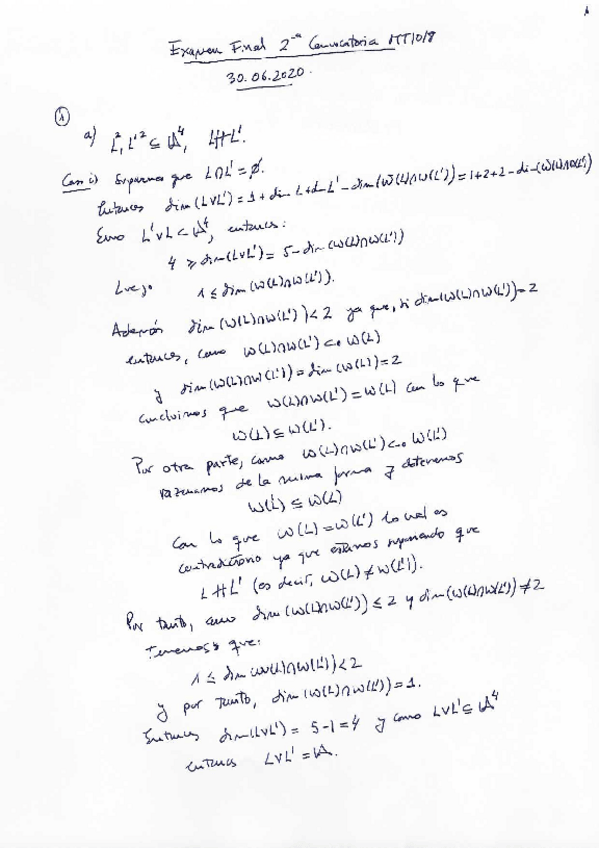 Examen Final 2ª Convocatoria MT1018
30.06.2020.
1
a) L², L'² ⊆ A⁴, L ∦ L'.
Caso i) Suponemos que L∩L' = ∅.
Entonces dim(L∨L') = 1 + dim L + dim L' - dim(W(L)∩W(L')) = 1+2+2 - dim(W(L)∩W(L'))
Como L'∨L < A⁴, entonces:
4 ≥ dim(L∨L') = 5 - dim(W(L)∩W(L'))
Luego 1 ≤ dim(W(L)∩W(L')).
Además dim(W(L)∩W(L')) < 2 ya que, si dim(W(L)∩W(L')) = 2
entonces, como W(L)∩W(L') <₀ W(L)
y dim(W(L)∩W(L')) = dim(W(L)) = 2
concluimos que W(L)∩W(L') = W(L) con lo que
W(L) ⊆ W(L').
Por otra parte, como W(L)∩W(L') <₀ W(L')
razonamos de la misma forma y obtenemos
W(L') ⊆ W(L)
Con lo que W(L) = W(L') lo cual es
contradictorio ya que estamos suponiendo que
L ∦ L' (es decir, W(L) ≠ W(L')).
Por tanto, como dim(W(L)∩W(L')) ≤ 2 y dim(W(L)∩W(L')) ≠ 2
tenemos que:
1 ≤ dim(W(L)∩W(L')) < 2
y por tanto, dim(W(L)∩W(L')) = 1.
Entonces dim(L∨L') = 5-1 = 4 y como L∨L' ⊆ A⁴
entonces L∨L' = A.